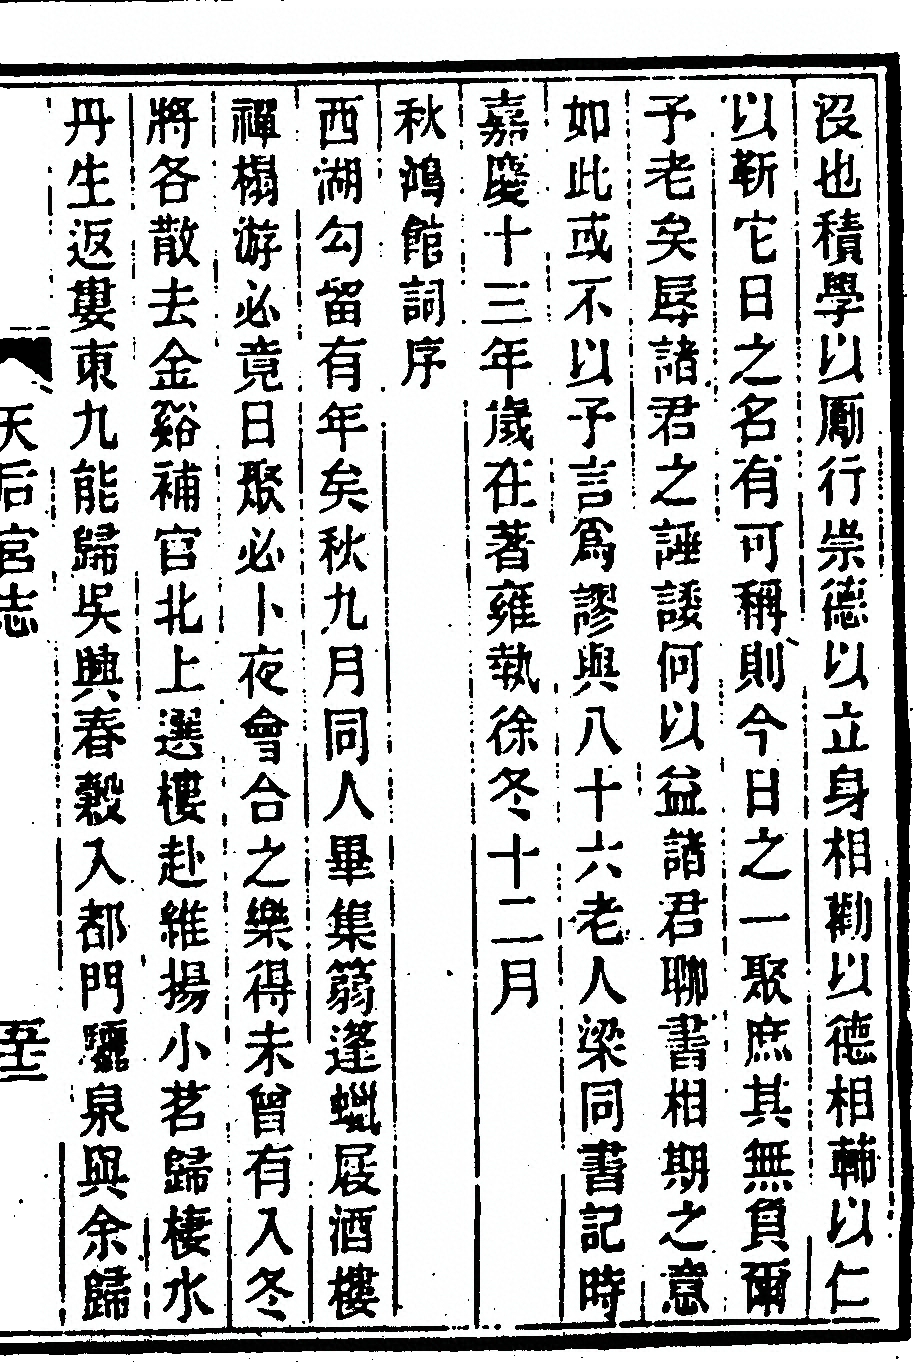 沒也積學以勵行崇德以立身相勸以德相輔以仁
以靳它日之名有可稱則今日之一聚庶其無負爾
予老矣辱諸君之諈諉何以益諸君聊書相期之意
如此或不以予言爲謬與八十六老人梁同書記時
嘉慶十三年歲在著雍執徐冬十二月
秋鴻館詞序
西湖勾留有年矣秋九月同人畢集篛篷蠟屐酒樓
禪榻游必竟日聚必卜夜會合之樂得未曾有入冬
將各散去金谿補官北上選樓赴維揚小茗歸棲水
丹生返婁東九能歸吳興春榖入都門驪泉與余歸
天后宮志
五十二